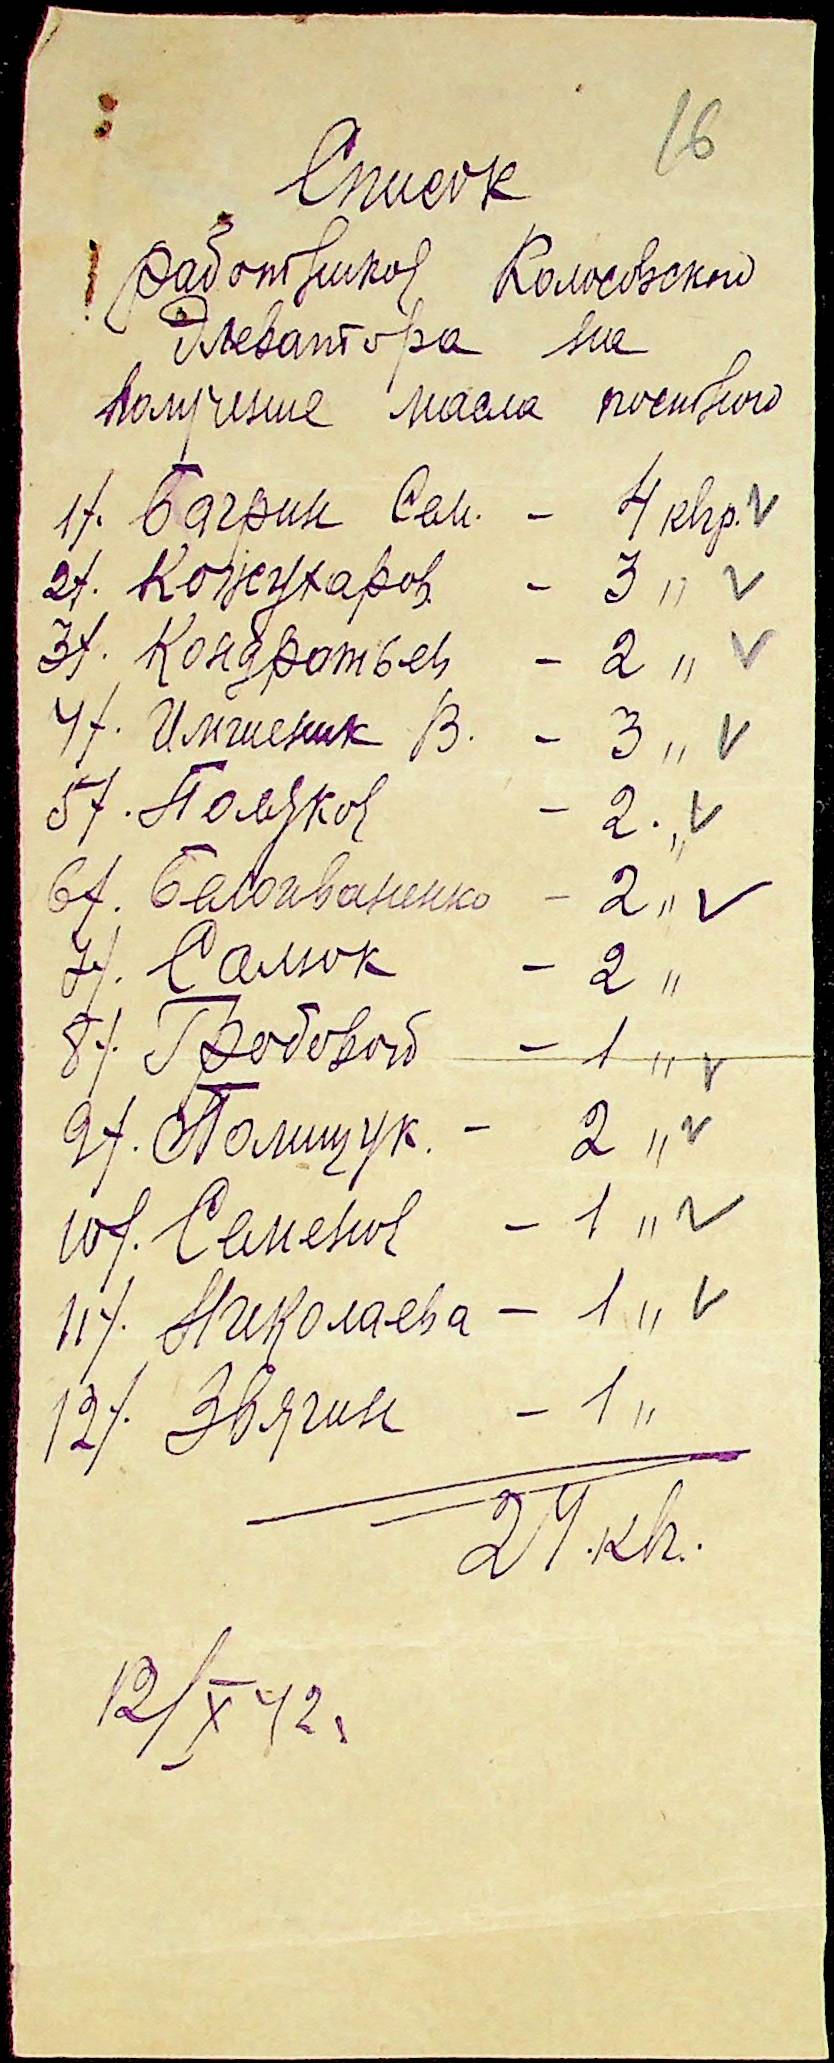 16
Список
работников Колосовского
Элеватора на
получение масла постного
1/. Багрин Сем. - 4 клгр. ✓
2/. Кожухаров - 3 " ✓
3/. Кондратьев - 2 " ✓
4/. Имшеник В. - 3 " ✓
5/. Полуков - 2. " ✓
6/. Белоиваненко - 2 " ✓
7/. Салюк - 2 "
8/. Гробовой - 1 " ✓
9/. Полищук. - 2 " ✓
10/. Семенов - 1 " ✓
11/. Николаева - 1 " ✓
12/. Звягин - 1 "
24.кл..
12/X 42.